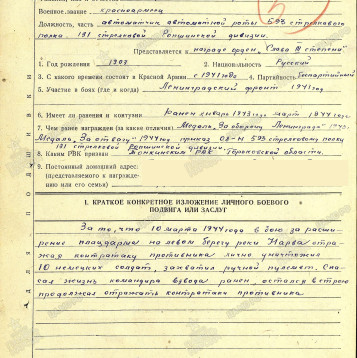 Военное звание красноармеец
Должность, часть автоматчик автоматной роты 593 стрелкового
полка 131 стрелковой Ропшинской дивизии.
Представляется к награде орден "Слава III степени"
1. Год рождения 1907 2. Национальность Русский
3. С какого времени состоит в Красной Армии с 1941 года 4. Партийность Беспартийный
5. Участие в боях (где и когда) Ленинградский фронт 1941 год
6. Имеет ли ранения и контузии Ранен январь 1943 года март 1944 года
7. Чем ранее награжден (за какие отличия) Медаль "За оборону Ленинграда" 1943.
Медаль "За отвагу" 1944 год приказ 593 стрелкового полку
131 стрелковой Ропшинской дивизии.
8. Каким РВК призван РВК Горьковской области.
9. Постоянный домашний адрес:
(представляемого к награжде-
нию или его семьи)
I. КРАТКОЕ КОНКРЕТНОЕ ИЗЛОЖЕНИЕ ЛИЧНОГО БОЕВОГО
ПОДВИГА ИЛИ ЗАСЛУГ
За то, что 10 марта 1944 года в бою за расши-
рение плацдарма на левом берегу реки Нарва отра-
жая контратаку противника лично уничтожил
10 немецких солдат, захватил ручной пулемет. Спа-
сая жизнь командира взвода ранен, остался в строю
продолжал отражать контратаки противника